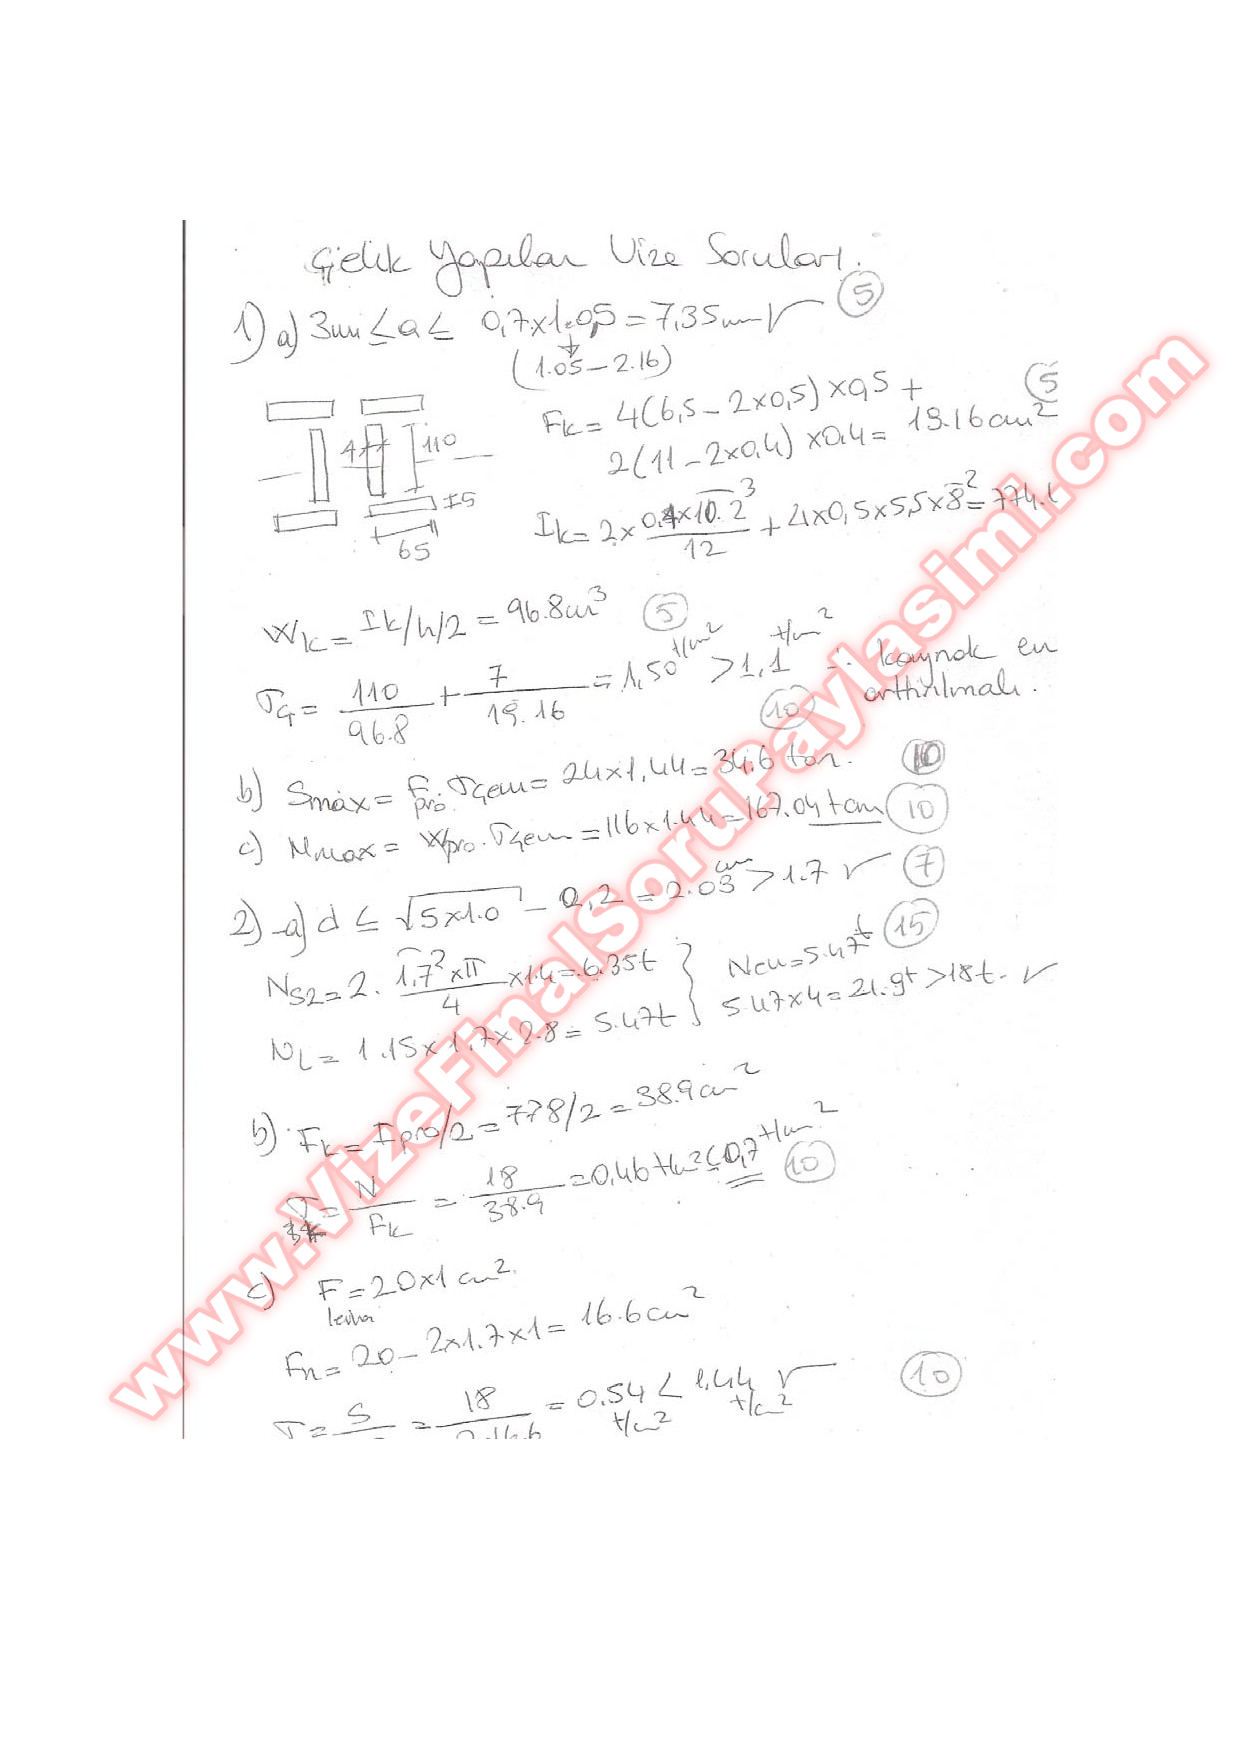 Çelik Yapıları Vize Soruları.
1) a) 3mm ≤ a ≤ 0,7x1.05 = 7,35mm √ (5)
(1.05 - 2.16)
Fk = 4(6,5 - 2x0,5) x0,5 + (5)
2(11 - 2x0,4) x0,4 = 19.16cm²
4 110
I5
65
Ik = 2x 0,4x10.2³/12 + 4x0,5x5,5x8² = 774.
Wk = Ik/h/2 = 96.8cm³ (5)
σG = 110/96.8 + 7/19.16 = 1,50 t/cm² > 1,1 t/cm² ∴ kaynak en
arthırılmalı. (10)
b) Smax = Fpro. σçem = 24x1,44 = 34.6 ton. (10)
c) Mmax = Wpro. σçem = 116x1.44 = 167.04 tcm (10)
2) a) d ≤ √5x1.0 - 0,2 = 2.03 cm > 1.7 √ (7)
Ns2 = 2. 1.7²xπ/4 x1.4 = 6.35t } Ncu = 5.47t (15)
NL = 1.15x1.7x2.8 = 5.47t } 5.47x4 = 21.9t > 18t. √
b) Fk = Fpro/2 = 778/2 = 38.9cm²
σ = N/Fk = 18/38.9 = 0,46 t/cm² < 0,7 t/cm² (10)
c) F = 20x1 cm².
levha
Fn = 20 - 2x1.7x1 = 16.6cm²
σ = S = 18/2.16.6 = 0.54 < 1.44 √ (10)
t/cm² t/cm²
www.VizeFinalSoruPaylasimi.com